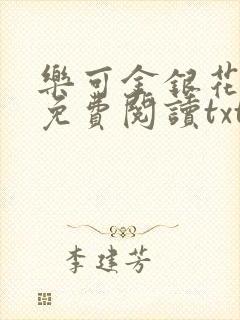 樂可金銀花
免費閱讀txt
李建芳